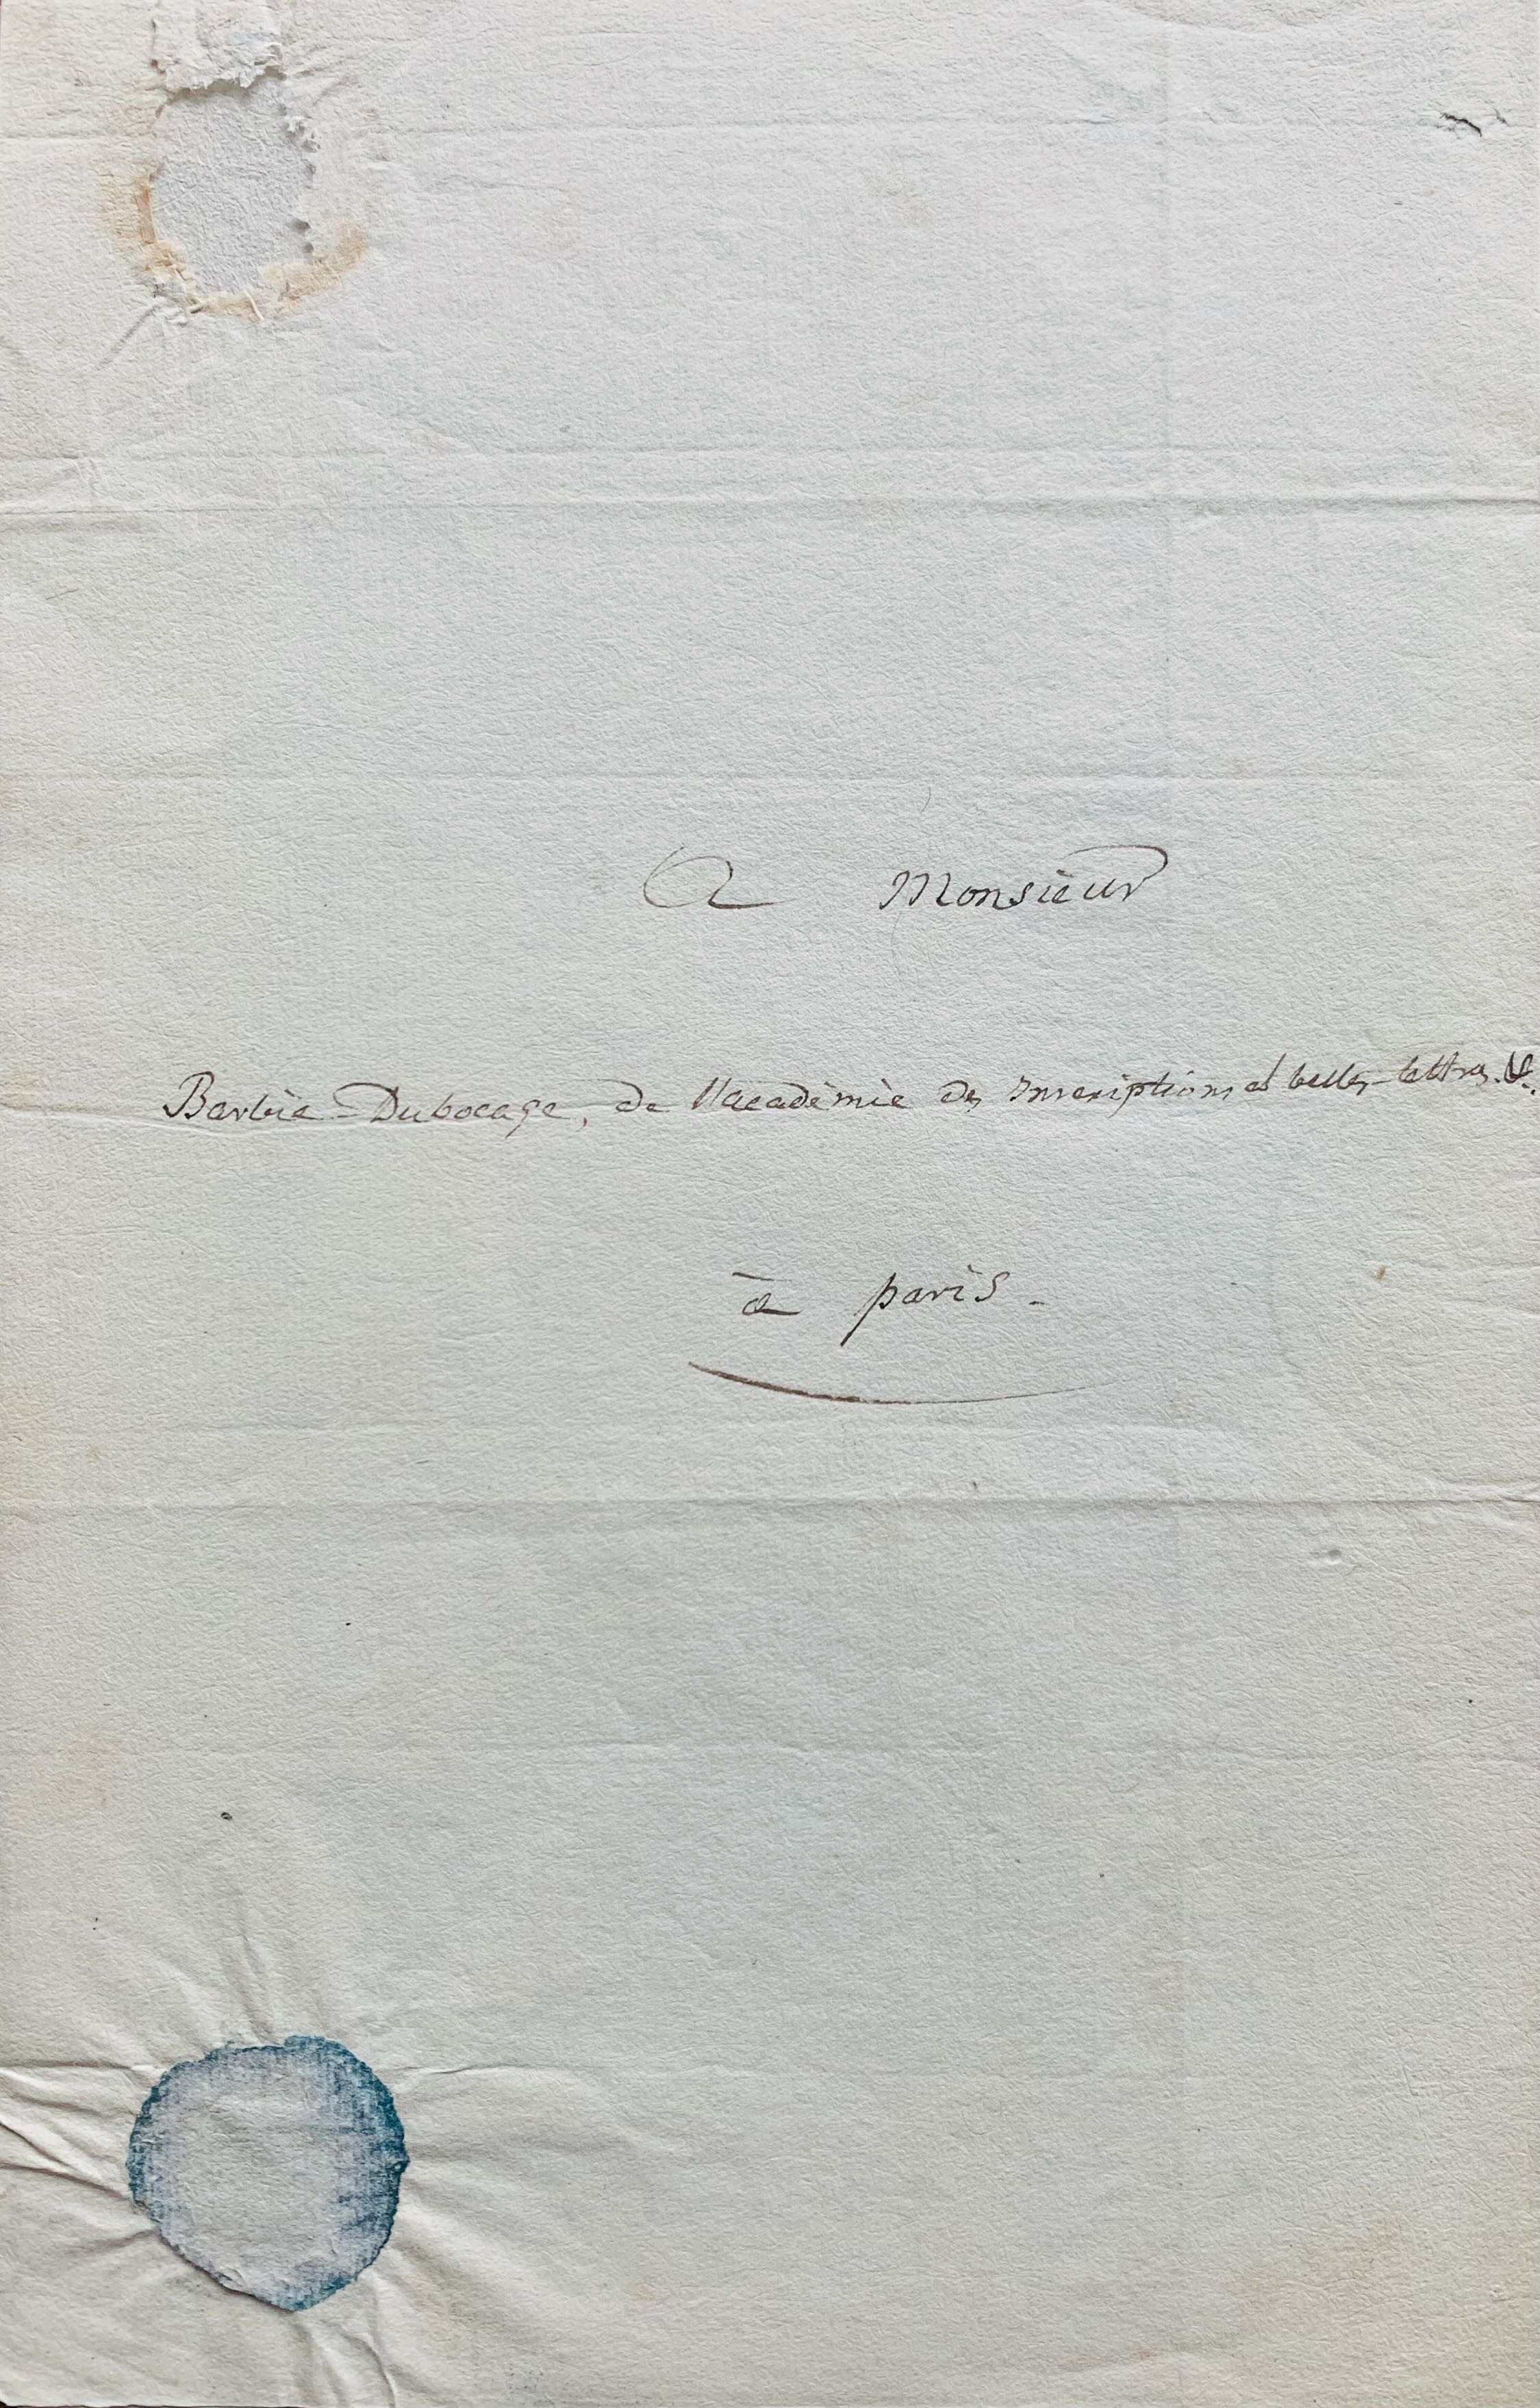 A Monsieur
Barbié-Dubocage, de l'académie des Inscriptions et belles-lettres. &.
à paris.